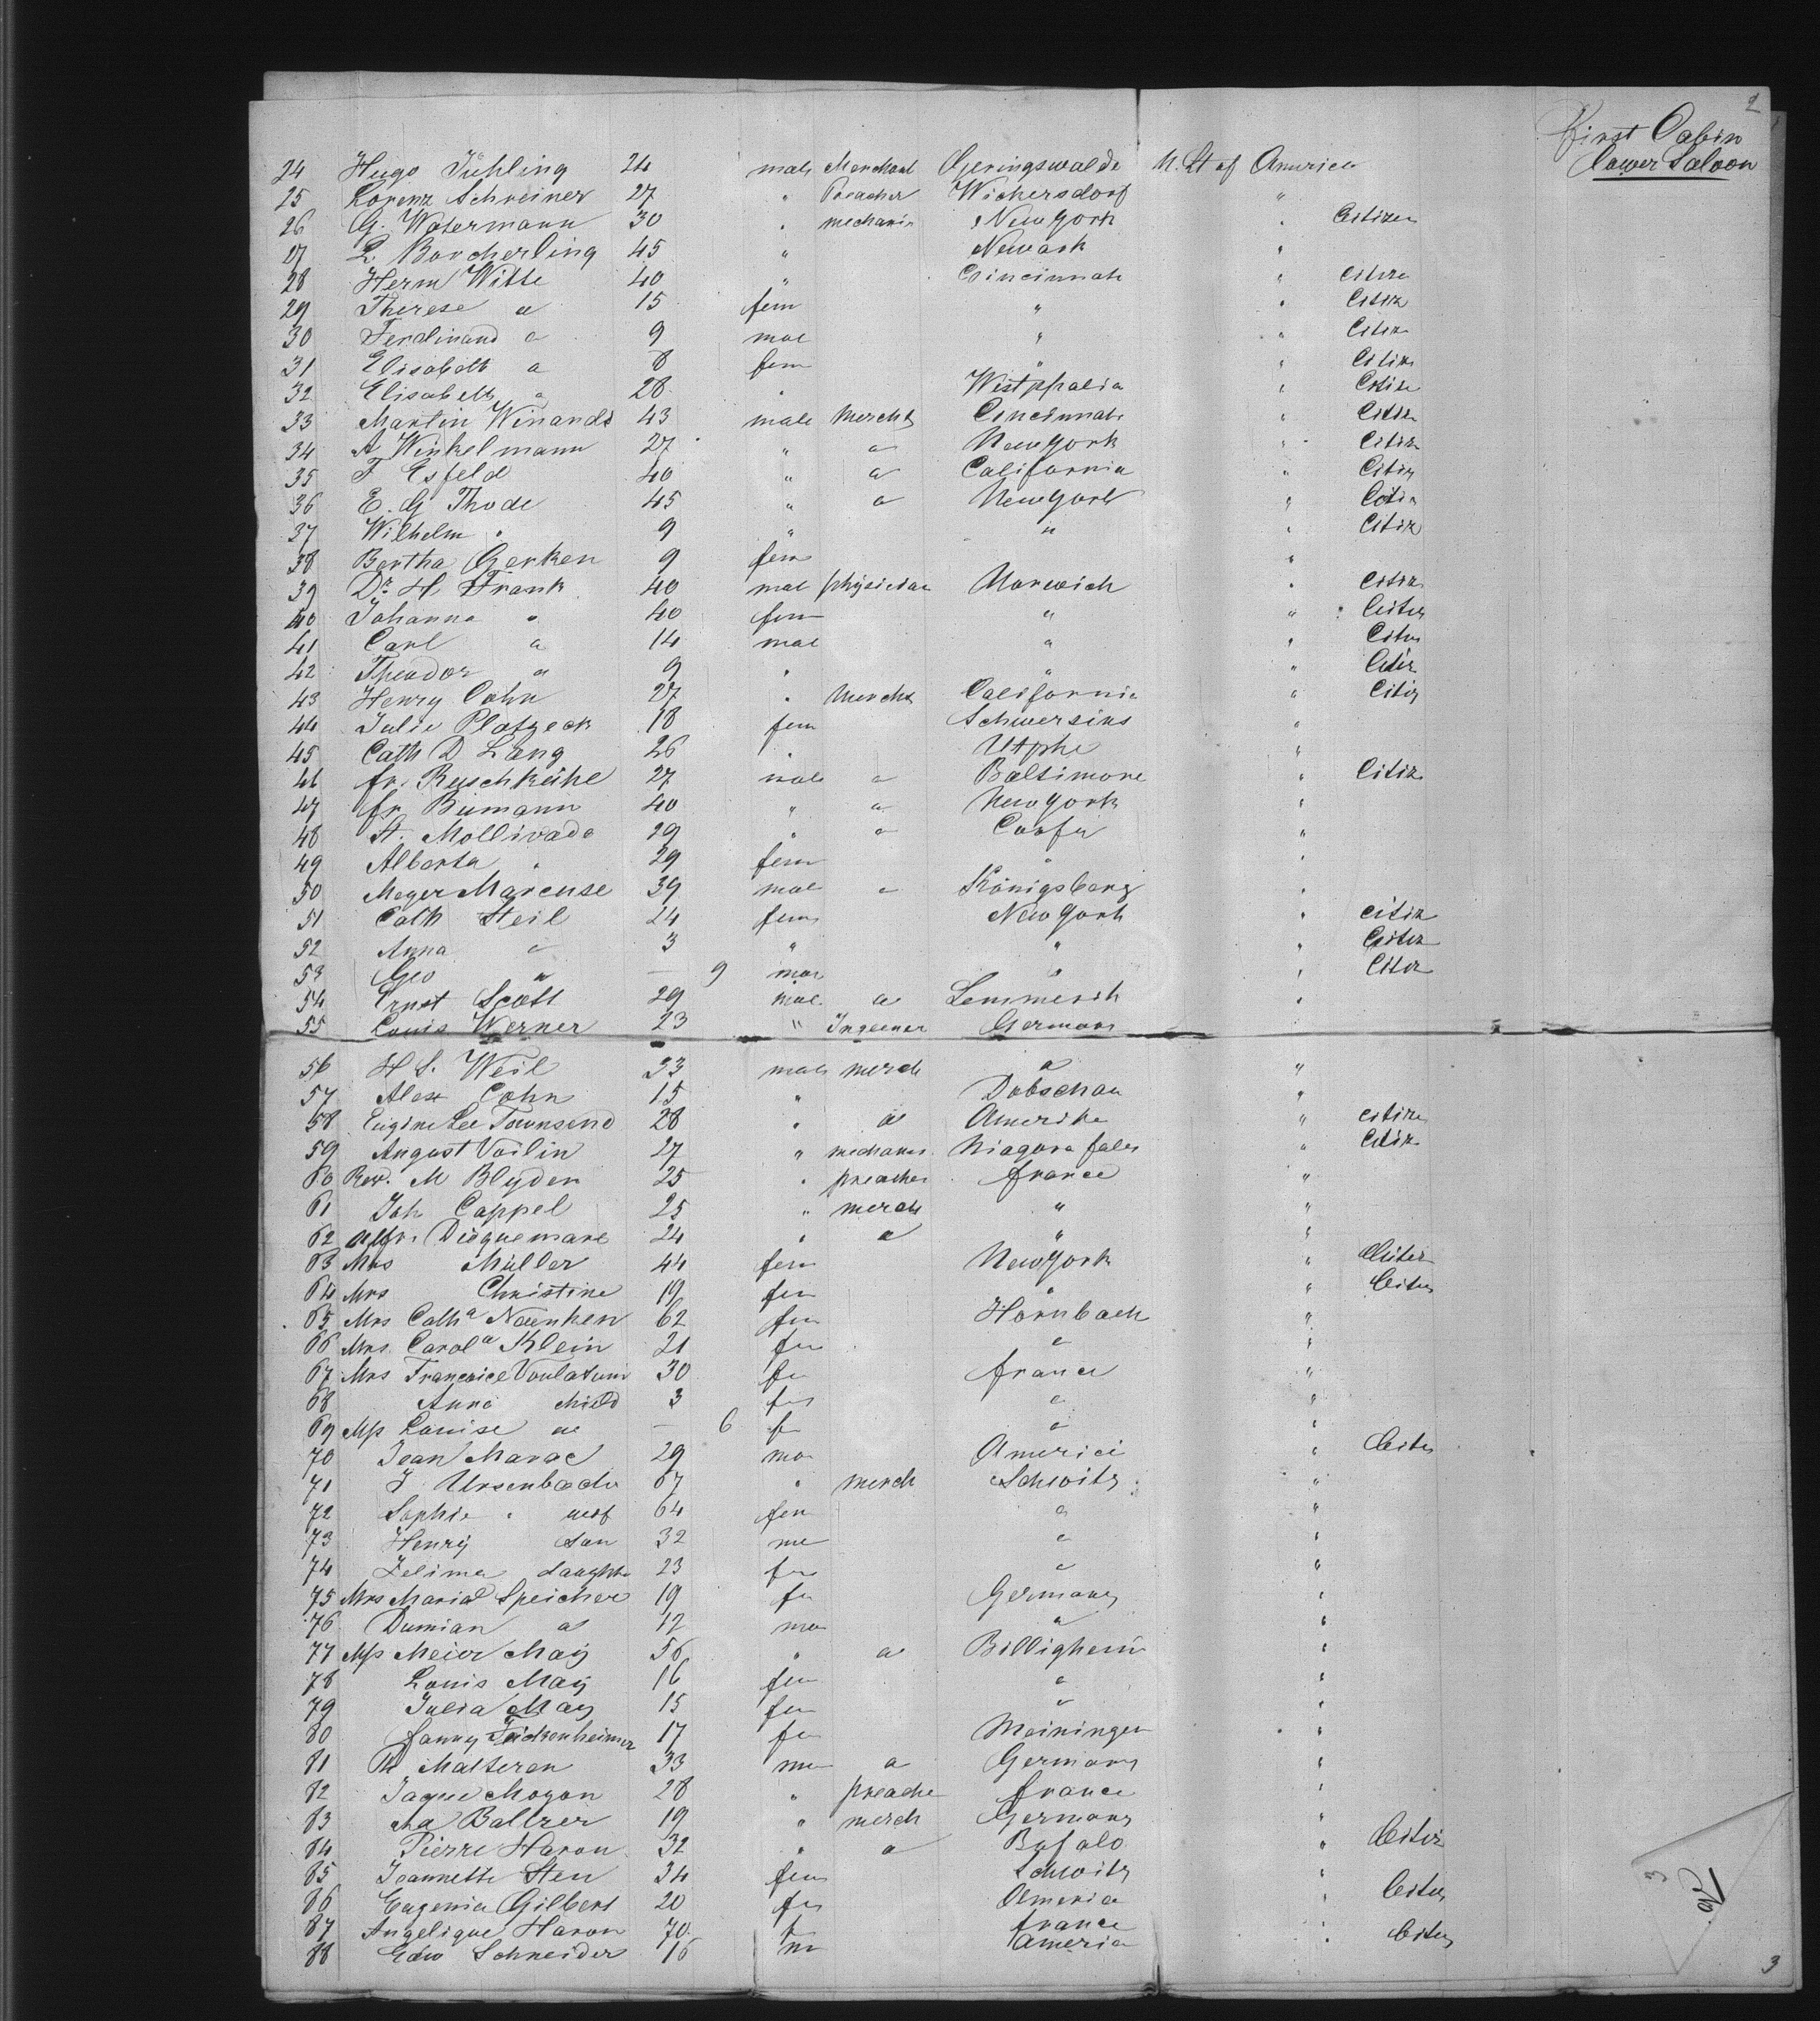 2
First Cabin
lower Saloon
24 Hugo Jühling 24 male Merchant Geringswalde U. St of America
25 Lorenz Schreiner 27 " Preacher Wickersdorf "
26 G. Watermann 30 " mechanic New York " Citizen
27 L. Borcherling 45 " Newark "
28 Herm Witte 40 " Cincinnati " Citize
29 Therese " 15 fem " " Citiz
30 Ferdinand " 9 mal " " Citiz
31 Elisabeth " 8 fem " " Citiz
32 Elisabeth " 28 " Westphalia " Citize
33 Martin Winands 43 male Mercht Cincinnati " Citiz
34 A Winkelmann 27 " " New York " Citiz
35 F Esfeld 40 " " California " Citiz
36 E. G Thode 45 " " New York " Citiz
37 Wilhelm " 9 " " " Citiz
38 Bertha Gerken 9 fem "
39 Dr. H Frank 40 mal physician Norwich " Citiz
40 Johanna " 40 fem " " Citiz
41 Carl " 14 mal " " Citiz
42 Theodor " 9 " " " Citiz
43 Henry Cohn 27 " Mercht California " Citiz
44 Julie Plotzeck 18 fem Schwersins "
45 Cath D Lang 26 " Utphe "
46 fr. Ruschkühl 27 male " Baltimore " Citiz
47 fr. Bumann 40 " " New York "
48 St. Mollivado 29 " " Corfu "
49 Alberta " 29 fem " "
50 Meyer Marcuse 39 mal " Königsberg "
51 Cath Heil 24 fem New York " Citiz
52 Anna " 3 " " " Citiz
53 Geo " — 9 mal " " Citiz
54 Ernst Scott 29 mal "
55 Louis Werner 23 " Ingeener Germany
56 H S. Weil 33 male merch " "
57 Alex Cohn 15 " Dobschau "
58 Eugine Lee Townsend 28 " " Amerika " citize
59 August Voilin 27 " mechanic Niagara falls " Citiz
60 Rev. M Blyden 25 " preacher france "
61 Joh Cappel 25 " merch " "
62 Dicquemare 24 " " " "
63 Mrs Müller 44 fem New York " Citiz
64 Mrs Christine 19 fem " " Citiz
65 Mrs Catha Naunken 62 fem Hornbach "
66 Mrs. Carola Klein 21 fem " "
67 Mrs 30 fe france "
68 Anna child 3 fem " "
69 Mss Louise " — 6 f " "
70 Jean Marac 29 ma America " Citiz
71 J Ursenbach 67 " merch Schwitz "
72 Sophie " weif 64 fem " "
73 Henry son 32 me " "
74 Zelima daughter 23 fem " "
75 Mrs Maria Speicher 19 fe Germany "
76 Dumian " 12 ma " "
77 Mss Meier May 56 " " Billigheim "
78 Louis May 16 fem " "
79 Julia May 15 fem " "
80 fanny 17 fe Meiningen "
81 Ph Malteran 33 me " Germany "
82 Jaque Moyon 28 " preacher france "
83 Ma Baltzer 19 " merch Germany "
84 Pierre Haron 32 " " Bufalo " Citiz
85 Jeannette Sten 34 fem Schwitz "
86 Eugenia Gilbert 20 fem America " Citiz
87 Angelique Haron 70 f france "
88 Edw Schneider 16 m America " Citiz
3
3